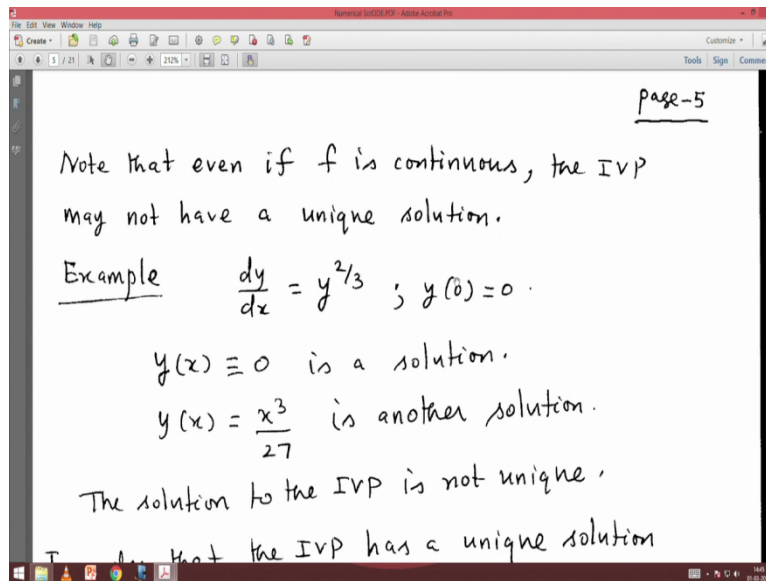 Numerical SolODE.PDF - Adobe Acrobat Pro
File Edit View Window Help
Create
Customize
5 / 21
212%
Tools Sign Comme
Page-5
Note that even if f is continuous, the IVP
may not have a unique solution.
Example dy/dx = y^2/3 ; y(0) = 0 .
y(x) ≡ 0 is a solution.
y(x) = x^3/27 is another solution.
The solution to the IVP is not unique.
that the IVP has a unique solution